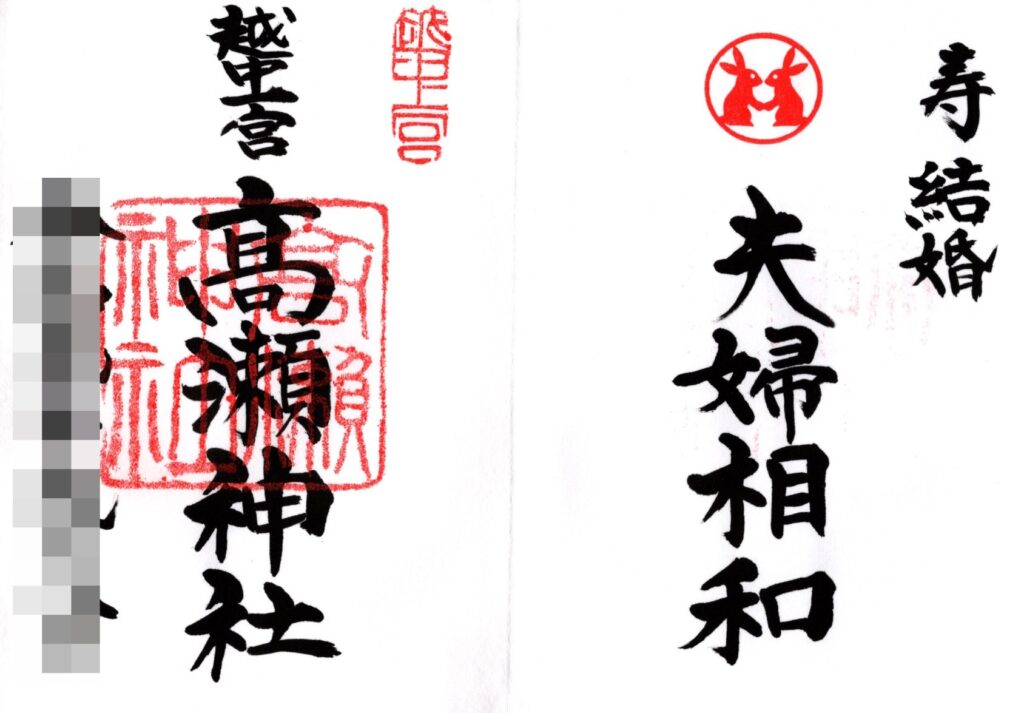 寿 結婚
夫婦相和
越中一宮
越中一宮
髙瀬神社
高瀬神社